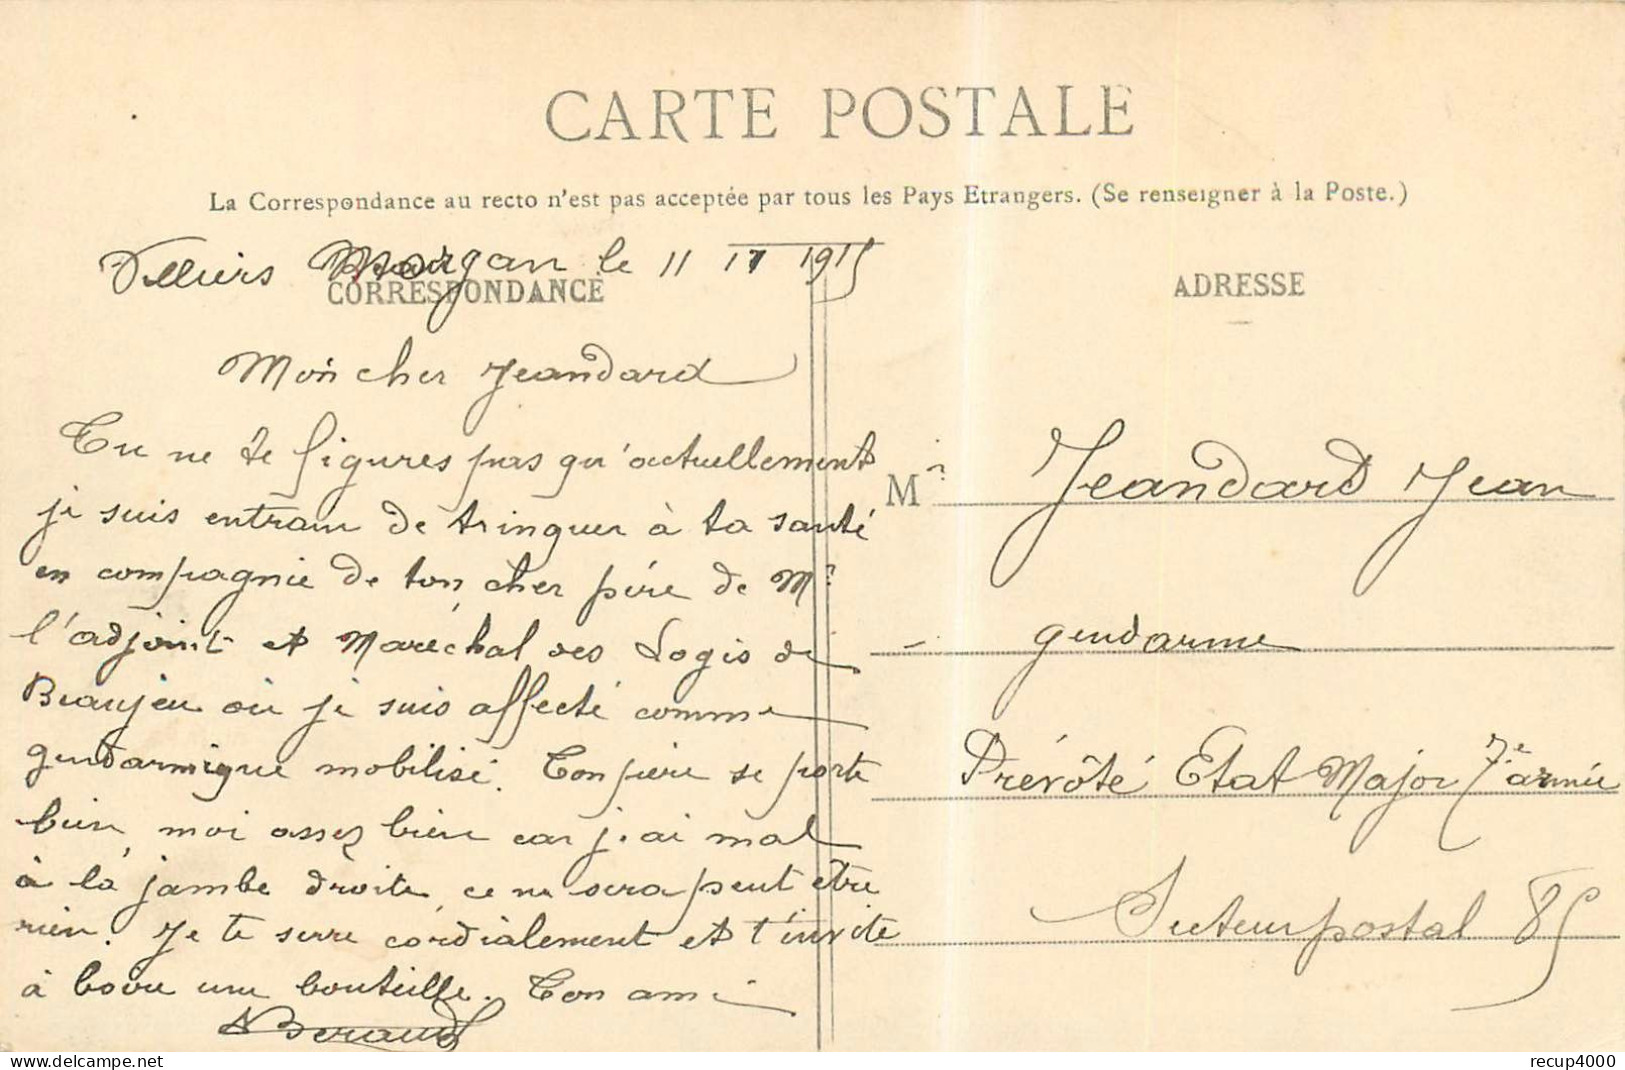 CARTE POSTALE
La Correspondance au recto n'est pas acceptée par tous les Pays Etrangers. (Se renseigner à la Poste.)
Villiers Morgan le 11 1915
CORRESPONDANCE
ADRESSE
Mon cher Jeandard
Tu ne te figures pas qu'actuellement
je suis entrain de trinquer à ta santé
en compagnie de ton cher père de Mr
l'adjoint et Maréchal des Logis de
Beaujeu où je suis affecté comme
gendarmique mobilisé. Ton père se porte
bien, moi assez bien car j'ai mal
à la jambe droite, ce ne sera peut être
rien. Je te serre cordialement et t'invite
à boire une bouteille. Ton ami
Beraud
Mr Jeandard Jean
gendarme
Prévôté Etat Major 7e armée
Secteur postal 85
www.delcampe.net
recup4000